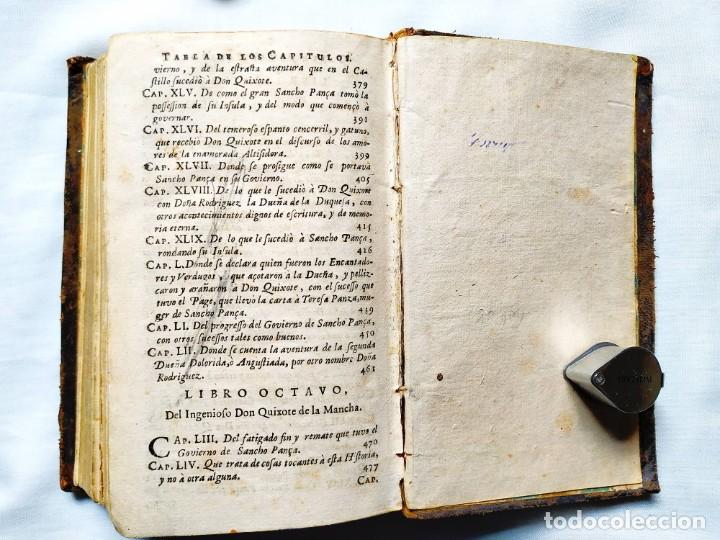 TABLA DE LOS CAPITULOS.
vierno, y de la estraña aventura que en el Ca-
stillo sucediò à Don Quixote. 379
CAP. XLV. De como el gran Sancho Pança tomò la
possession de su Insula, y del modo que començò à
governar. 391
CAP. XLVI. Del temeroso espanto cencerril, y gatuno,
que recebio Don Quixote en el discurso de los amo-
res de la enamorada Altisidora. 399
CAP. XLVII. Donde se prosigue como se portava
Sancho Pança en su Govierno. 405
CAP. XLVIII. De lo que le sucediò à Don Quixote
con Doña Rodriguez la Dueña de la Duquesa, con
otros acontecimientos dignos de escritura, y de memo-
ria eterna. 415
CAP. XLIX. De lo que le sucediò à Sancho Pança,
rondando su Insula. 426
CAP. L. Donde se declara quien fueron los Encantado-
res y Verdugos, que açotaron à la Dueña, y pelliz-
caron y arañaron à Don Quixote, con el sucesso que
tuvo el Page, que llevò la carta à Teresa Panza, mu-
ger de Sancho Pança. 439
CAP. LI. Del progresso del Govierno de Sancho Pança,
con otros sucessos tales como buenos. 450
CAP. LII. Donde se cuenta la aventura de la segunda
Dueña Dolorida, ò Angustiada, por otro nombre Doña
Rodriguez. 461
LIBRO OCTAVO,
Del Ingenioso Don Quixote de la Mancha.
CAP. LIII. Del fatigado fin y remate que tuvo el
Govierno de Sancho Pança. 470
CAP. LIV. Que trata de cosas tocantes à esta Historia,
y no à otra alguna. 477
CAP.
todocoleccion.net